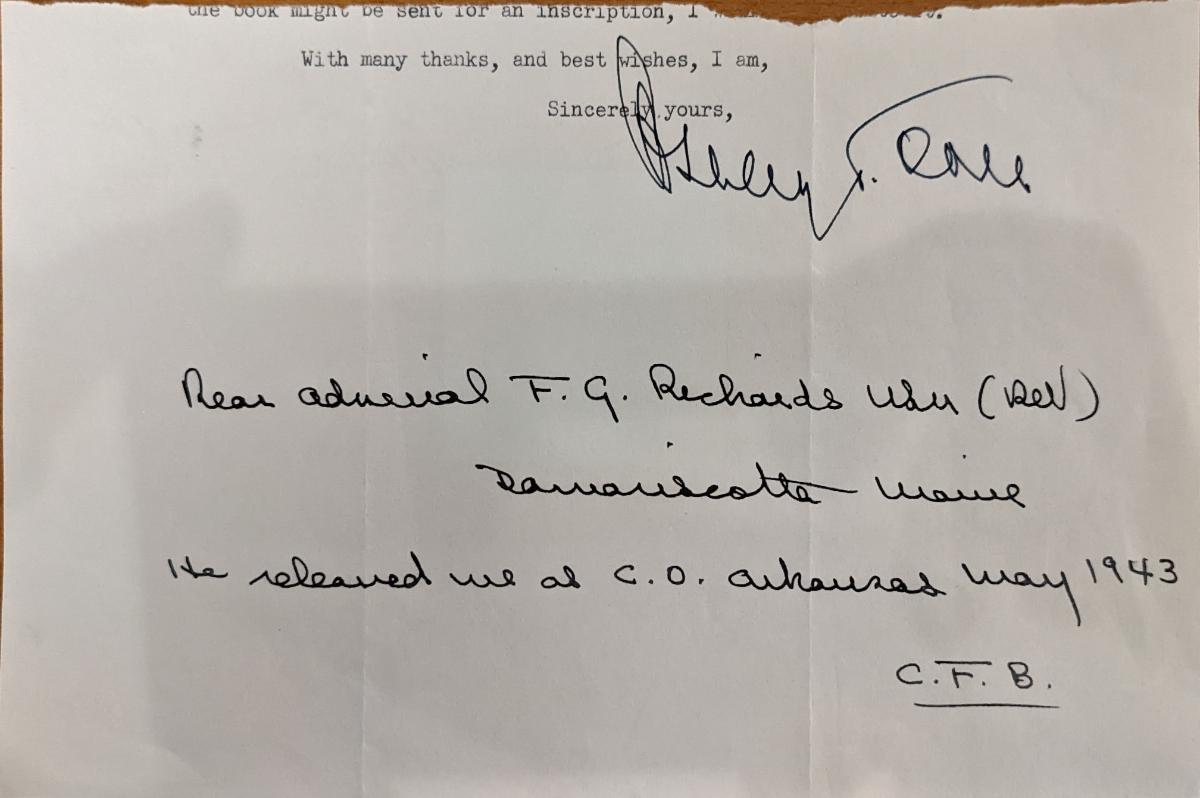 the book might be sent for an inscription, I
With many thanks, and best wishes, I am,
Sincerely yours,
Ashley T. Cole
Rear Admiral F. G. Richards USN (Ret)
Damariscotta Maine
He relieved me as C.O. Arkansas May 1943
C.F.B.